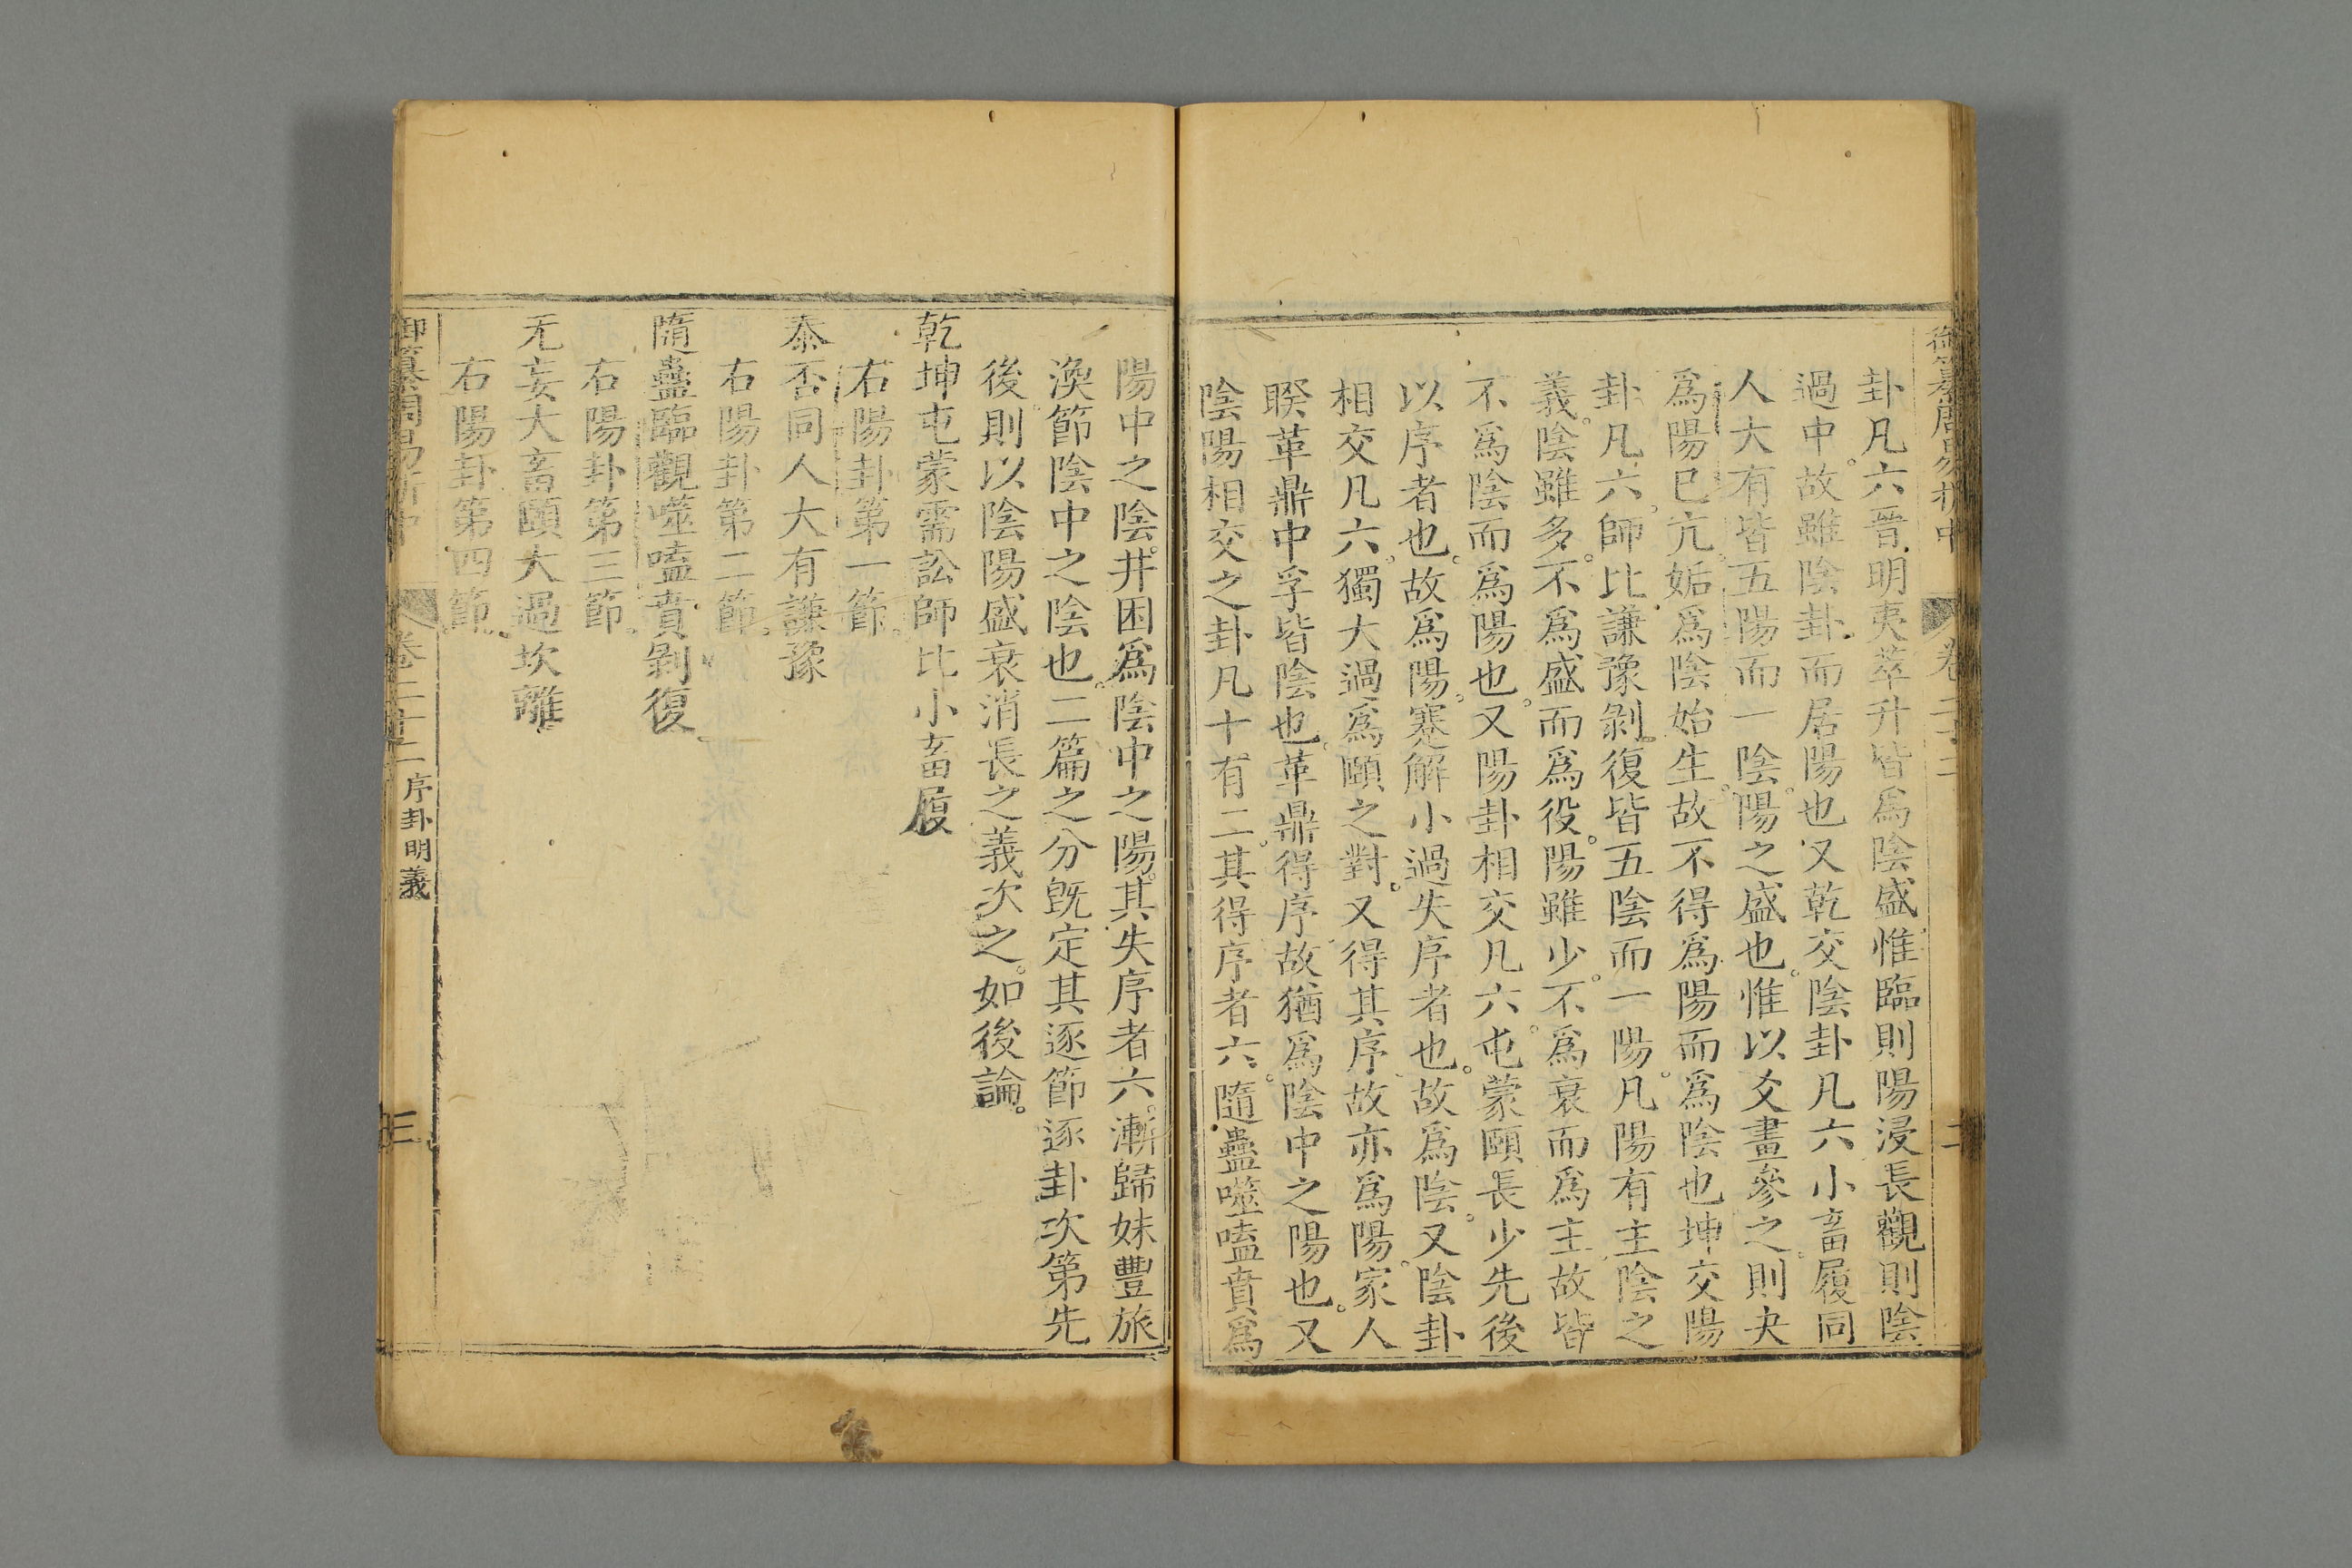 御纂周易折中
卷二十二
二
卦凡六晉明夷萃升皆爲陰盛惟臨則陽浸長觀則陰
過中故雖陰卦而居陽也又乾交陰卦凡六小畜履同
人大有皆五陽而一陰陽之盛也惟以爻畫參之則夬
爲陽已亢姤爲陰始生故不得爲陽而爲陰也坤交陽
卦凡六師比謙豫剝復皆五陰而一陽凡陽有主陰之
義陰雖多不爲盛而爲役陽雖少不爲衰而爲主故皆
不爲陰而爲陽也又陽卦相交凡六屯蒙頤長少先後
以序者也故爲陽蹇解小過失序者也故爲陰又陰卦
相交凡六獨大過爲頤之對又得其序故亦爲陽家人
睽革鼎中孚皆陰也革鼎得序故猶爲陰中之陽也又
陰陽相交之卦凡十有二其得序者六隨蠱噬嗑賁爲
陽中之陰井困爲陰中之陽其失序者六漸歸妹豐旅
渙節陰中之陰也二篇之分旣定其逐節逐卦次第先
後則以陰陽盛衰消長之義次之如後論
乾坤屯蒙需訟師比小畜履
右陽卦第一節
泰否同人大有謙豫
右陽卦第二節
隨蠱臨觀噬嗑賁剝復
右陽卦第三節
无妄大畜頤大過坎離
右陽卦第四節
御纂周易折中
卷二十二
序卦明義
三